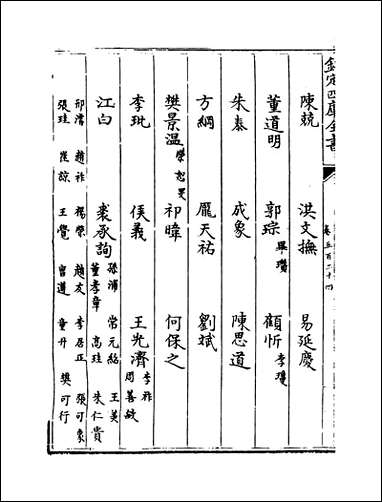 欽定四庫全書
卷五百二十四
陳兢 洪文撫 易延慶
董道明 郭琮 畢瓚 顧忻 李瓊
朱泰 成象 陳思道
方綱 龐天祐 劉斌
樊景温 榮恕旻 祁暐 何保之
李玭 侯義 王光濟 李祚 周善敏
江白 裘承詢 孫浦 常元紹 王美 董孝章 高珪 朱仁貴
邢濬 趙祚 楊榮 趙友 李居正 張可象
張珪 崔諒 王覺 甯遵 童升 樊可行